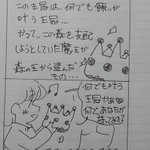 この王冠は…何でも願いが
叶う王冠…
かつて、この森を支配
しようとしていた魔王が
森の王から盗んだ
もの…
何でも叶う
王冠
何であなたが